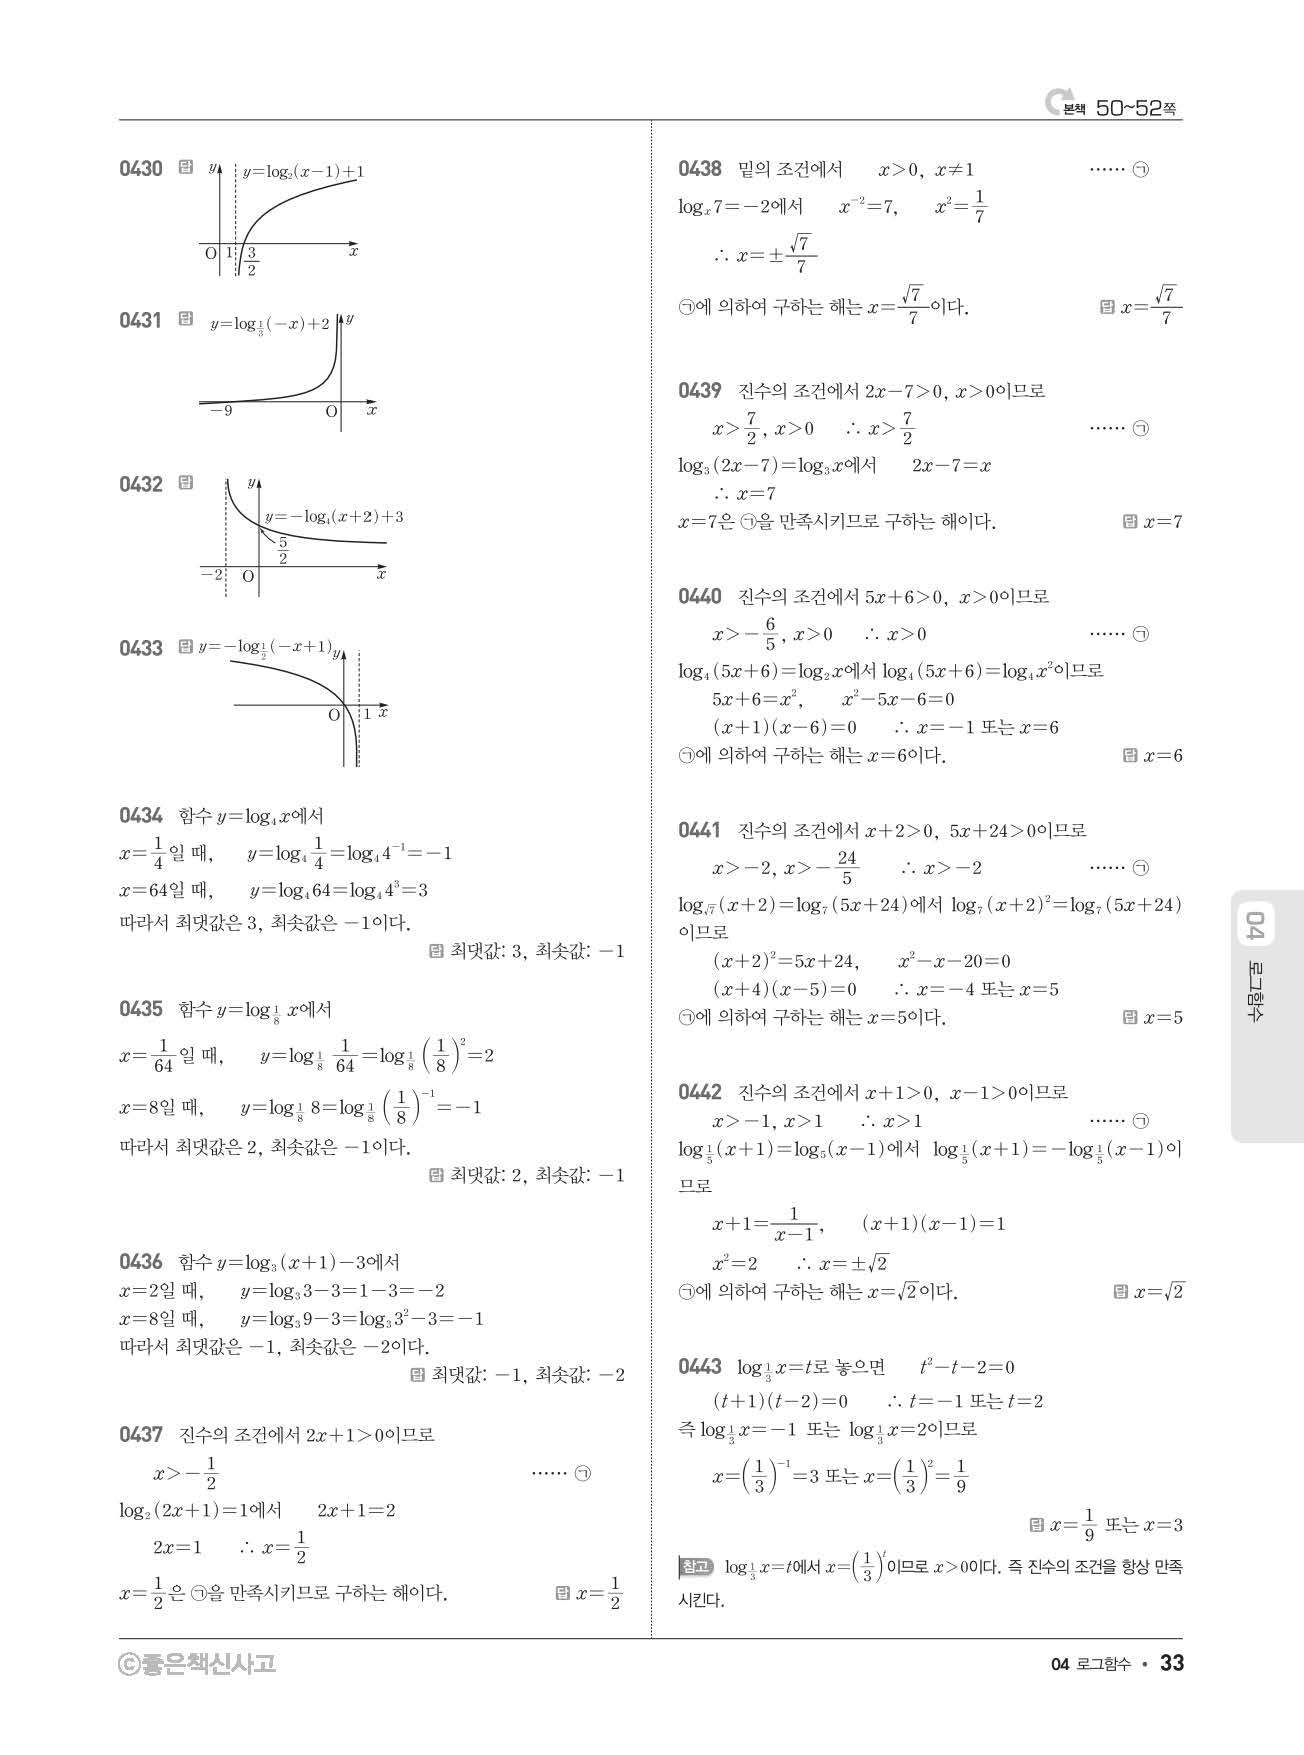 본책 50~52쪽
0430 답 y=log₂(x-1)+1
y
O 1 3/2 x
0431 답 y=log_{1/3}(-x)+2 y
-9 O x
0432 답 y
y=-log₄(x+2)+3
5/2
-2 O x
0433 답 y=-log_{1/2}(-x+1) y
O 1 x
0434 함수 y=log₄x에서
x=1/4일 때, y=log₄ 1/4=log₄4⁻¹=-1
x=64일 때, y=log₄64=log₄4³=3
따라서 최댓값은 3, 최솟값은 -1이다.
답 최댓값: 3, 최솟값: -1
0435 함수 y=log_{1/8} x에서
x=1/64일 때, y=log_{1/8} 1/64=log_{1/8}(1/8)²=2
x=8일 때, y=log_{1/8} 8=log_{1/8}(1/8)⁻¹=-1
따라서 최댓값은 2, 최솟값은 -1이다.
답 최댓값: 2, 최솟값: -1
0436 함수 y=log₃(x+1)-3에서
x=2일 때, y=log₃3-3=1-3=-2
x=8일 때, y=log₃9-3=log₃3²-3=-1
따라서 최댓값은 -1, 최솟값은 -2이다.
답 최댓값: -1, 최솟값: -2
0437 진수의 조건에서 2x+1>0이므로
x>-1/2 …… ㉠
log₂(2x+1)=1에서 2x+1=2
2x=1 ∴ x=1/2
x=1/2은 ㉠을 만족시키므로 구하는 해이다. 답 x=1/2
0438 밑의 조건에서 x>0, x≠1 …… ㉠
logₓ7=-2에서 x⁻²=7, x²=1/7
∴ x=±√7/7
㉠에 의하여 구하는 해는 x=√7/7이다. 답 x=√7/7
0439 진수의 조건에서 2x-7>0, x>0이므로
x>7/2, x>0 ∴ x>7/2 …… ㉠
log₃(2x-7)=log₃x에서 2x-7=x
∴ x=7
x=7은 ㉠을 만족시키므로 구하는 해이다. 답 x=7
0440 진수의 조건에서 5x+6>0, x>0이므로
x>-6/5, x>0 ∴ x>0 …… ㉠
log₄(5x+6)=log₂x에서 log₄(5x+6)=log₄x²이므로
5x+6=x², x²-5x-6=0
(x+1)(x-6)=0 ∴ x=-1 또는 x=6
㉠에 의하여 구하는 해는 x=6이다. 답 x=6
0441 진수의 조건에서 x+2>0, 5x+24>0이므로
x>-2, x>-24/5 ∴ x>-2 …… ㉠
log_{√7}(x+2)=log₇(5x+24)에서 log₇(x+2)²=log₇(5x+24)
이므로
(x+2)²=5x+24, x²-x-20=0
(x+4)(x-5)=0 ∴ x=-4 또는 x=5
㉠에 의하여 구하는 해는 x=5이다. 답 x=5
0442 진수의 조건에서 x+1>0, x-1>0이므로
x>-1, x>1 ∴ x>1 …… ㉠
log_{1/5}(x+1)=log₅(x-1)에서 log_{1/5}(x+1)=-log_{1/5}(x-1)이
므로
x+1=1/(x-1), (x+1)(x-1)=1
x²=2 ∴ x=±√2
㉠에 의하여 구하는 해는 x=√2이다. 답 x=√2
0443 log_{1/3}x=t로 놓으면 t²-t-2=0
(t+1)(t-2)=0 ∴ t=-1 또는 t=2
즉 log_{1/3}x=-1 또는 log_{1/3}x=2이므로
x=(1/3)⁻¹=3 또는 x=(1/3)²=1/9
답 x=1/9 또는 x=3
참고 log_{1/3}x=t에서 x=(1/3)ᵗ이므로 x>0이다. 즉 진수의 조건을 항상 만족
시킨다.
04 로그함수
ⓒ좋은책신사고
04 로그함수 • 33